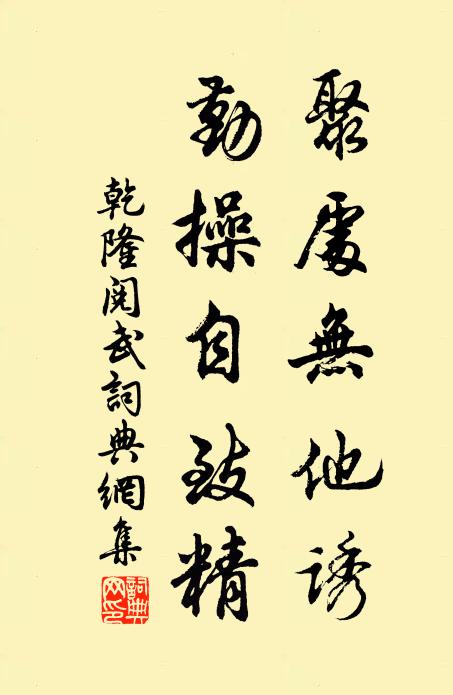 聚處無他誘
勤操自致精
乾隆閱武詞典網集